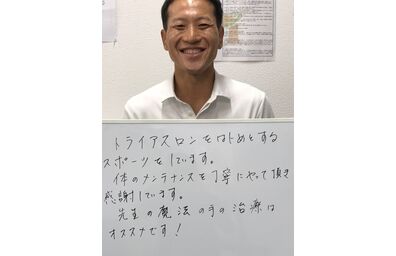 トライアスロンをはじめとする
スポーツをしています。
体のメンテナンスを丁寧にやって頂き
感謝しています。
先生の魔法の手の治療は
オススメです!